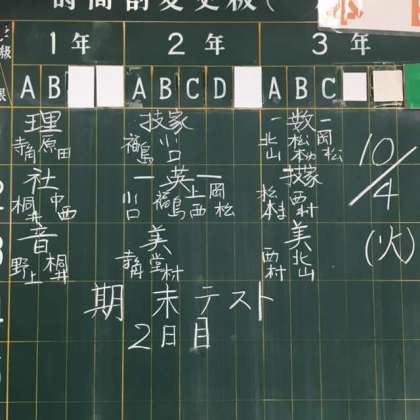 時間割変更板(
級 1年 2年 3年
限 A B A B C D A B C
理 技家 一数一
寺角 原田 福島 川口 北山 松本 松本幼 岡松
10/4
2 社 一英一 技家
桐井 中西 川口 福島 上西 岡松 松村 西村
3 音 美 美 (火)
野上 桐井 寺角 堂村 西村 北山
期末テスト
2日目